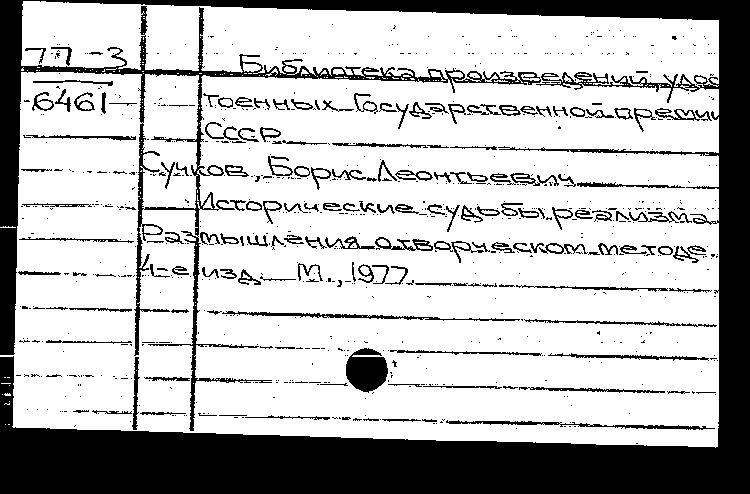 77-3
6461
Библиотека произведений, удос
тоенных Государственной преми
СССР
Сучков, Борис Леонтьевич
Исторические судьбы реализма
Размышления о творческом методе.
4-е изд. М., 1977.